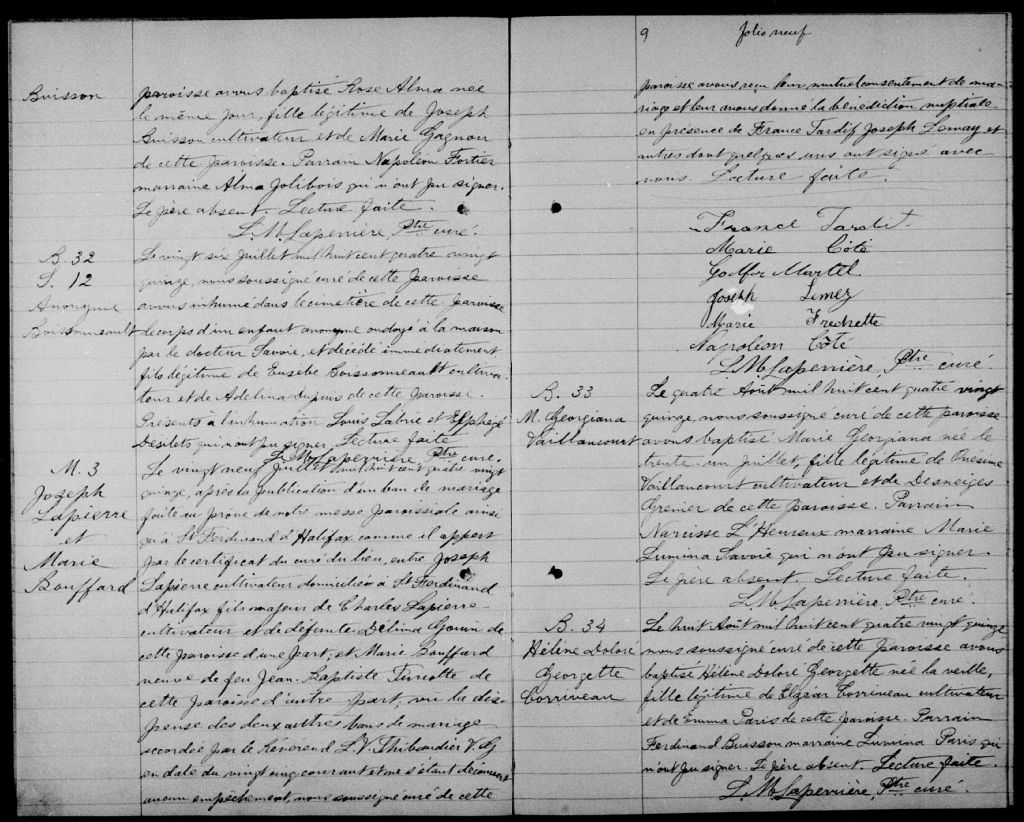 Buisson
paroisse avons baptisé Rose Alma née
le même jour, fille légitime de Joseph
Buisson cultivateur et de Marie Gagnon
de cette paroisse. Parrain Napoléon Fortier
marraine Alma Jolibois qui n'ont pu signer.
Le père absent. Lecture faite.
L. M. Laperrière, Ptre curé.
B. 32
S. 12
Anonyme
Boissonneault
Le vingt six juillet mil huit cent quatre vingt
quinze, nous soussigné curé de cette paroisse
avons inhumé dans le cimetière de cette paroisse
le corps d'un enfant anonyme ondoyé à la maison
par le docteur Savoie, et décédé immédiatement
fils légitime de Eusèbe Boissonneault cultiva-
teur et de Adelina Dupuis de cette paroisse.
Présents à l'inhumation Louis Labrie et
Desilets qui n'ont pu signer. Lecture faite
L. M. Laperrière, Ptre curé.
M. 3
Joseph
Lapierre
et
Marie
Bouffard
Le vingt neuf juillet mil huit cent quatre vingt
quinze, après la publication d'un ban de mariage
faite au prône de notre messe paroissiale ainsi
qu'à St Ferdinand d'Halifax comme il appert
par le certificat du curé du lieu, entre Joseph
Lapierre cultivateur domicilié à St Ferdinand
d'Halifax fils majeur de Charles Lapierre
cultivateur et de défunte Délina Gouin de
cette paroisse d'une part, et Marie Bouffard
veuve de feu Jean-Baptiste Turcotte de
cette paroisse d'autre part, vu la dis-
pense des deux autres bans de mariage
accordée par le Révérend L. V. Thibaudier V. G
en date du vingt cinq courant et ne s'étant découvert
aucun empêchement, nous soussigné curé de cette
9 folio neuf
paroisse avons reçu leur mutuel consentement de ma-
riage et leur avons donné la bénédiction nuptiale
en présence de France Tardif Joseph Lemay et
autres dont quelques uns ont signé avec
nous. Lecture faite.
France Tardif
Marie Côté
Godfer Martel
Joseph Lemez
Marie Frechette
Napoléon Côté
L. M. Laperrière, Ptre curé.
B. 33
M. Georgiana
Vaillancourt
Le quatre Août mil huit cent quatre vingt
quinze, nous soussigné curé de cette paroisse
avons baptisé Marie Georgiana née le
trente-un juillet, fille légitime de Onésime
Vaillancourt cultivateur et de Desneiges
Grenier de cette paroisse. Parrain
Narcisse L'Heureux marraine Marie
Lumina Savoie qui n'ont pu signer.
Le père absent. Lecture faite.
L. M. Laperrière, Ptre curé.
B. 34
Hélène Dolore
Georgette
Corriveau
Le huit Août mil huit cent quatre vingt quinze
nous soussigné curé de cette paroisse avons
baptisé Hélène Dolore Georgette née la veille,
fille légitime de Elzéar Corriveau cultivateur
et de Emma Paris de cette paroisse. Parrain
Ferdinand Buisson marraine Lumina Paris qui
n'ont pu signer. Le père absent. Lecture faite.
L. M. Laperrière, Ptre curé.